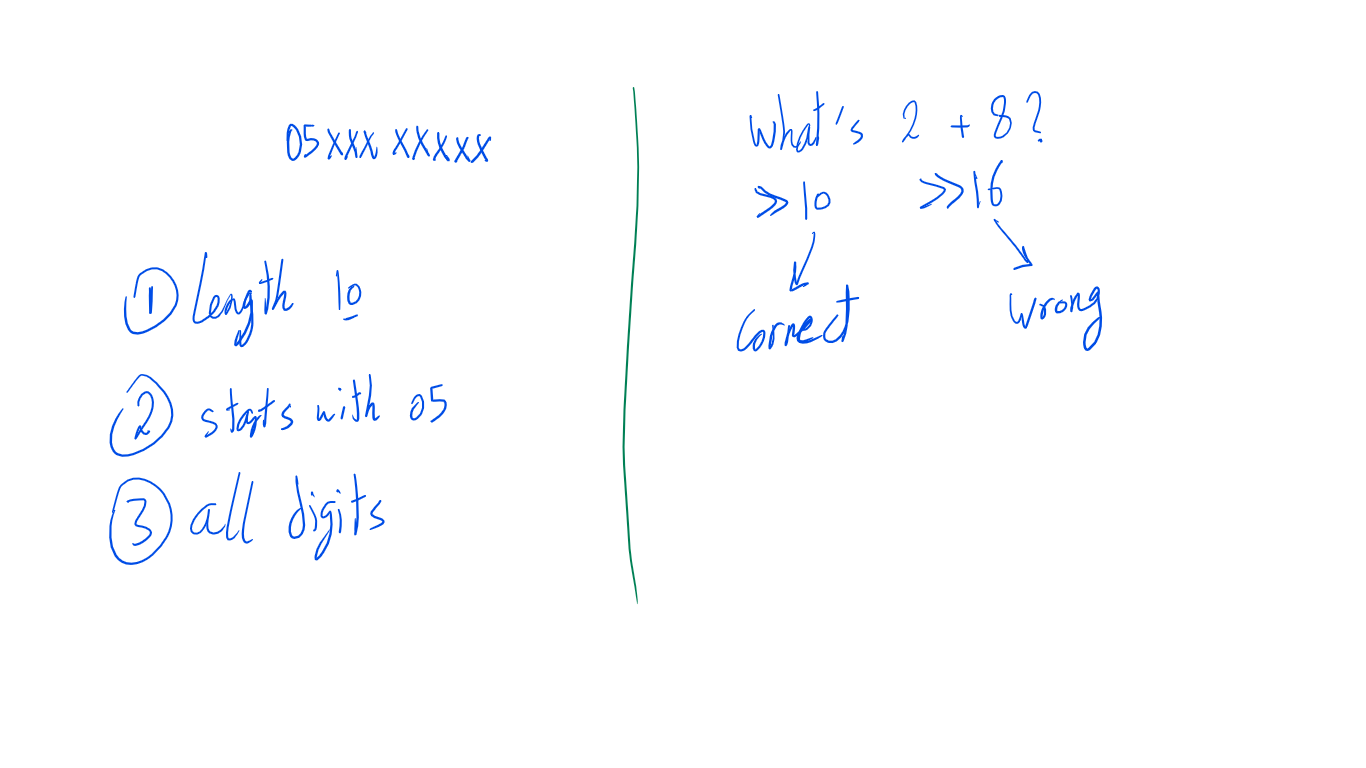 05xxx xxxxx
① Length 10
② starts with 05
③ all digits
What's 2 + 8?
>> 10 >> 16
Correct Wrong